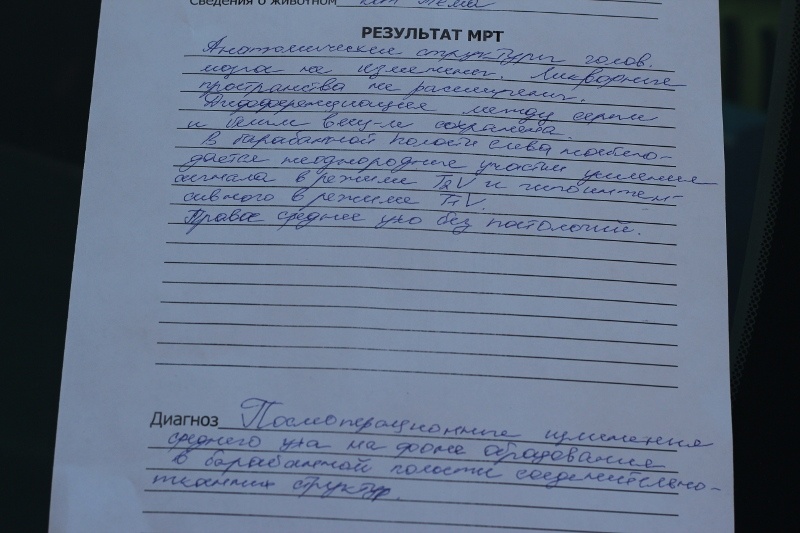 Сведения о животном кот Тёма
РЕЗУЛЬТАТ МРТ
Анатомические структуры голов.
мозга не изменены. Ликворные
пространства не расширены.
Дифференциация между серым
и белым вещ-м сохранена.
В барабанной полости слева наблю-
дается неоднородные участки усиления
сигнала в режиме T2V и гипоинтен-
сивного в режиме T1V.
Правое среднее ухо без патологий.
Диагноз Послеоперационные изменения
среднего уха на фоне образования
в барабанной полости соединительно-
тканных структур.